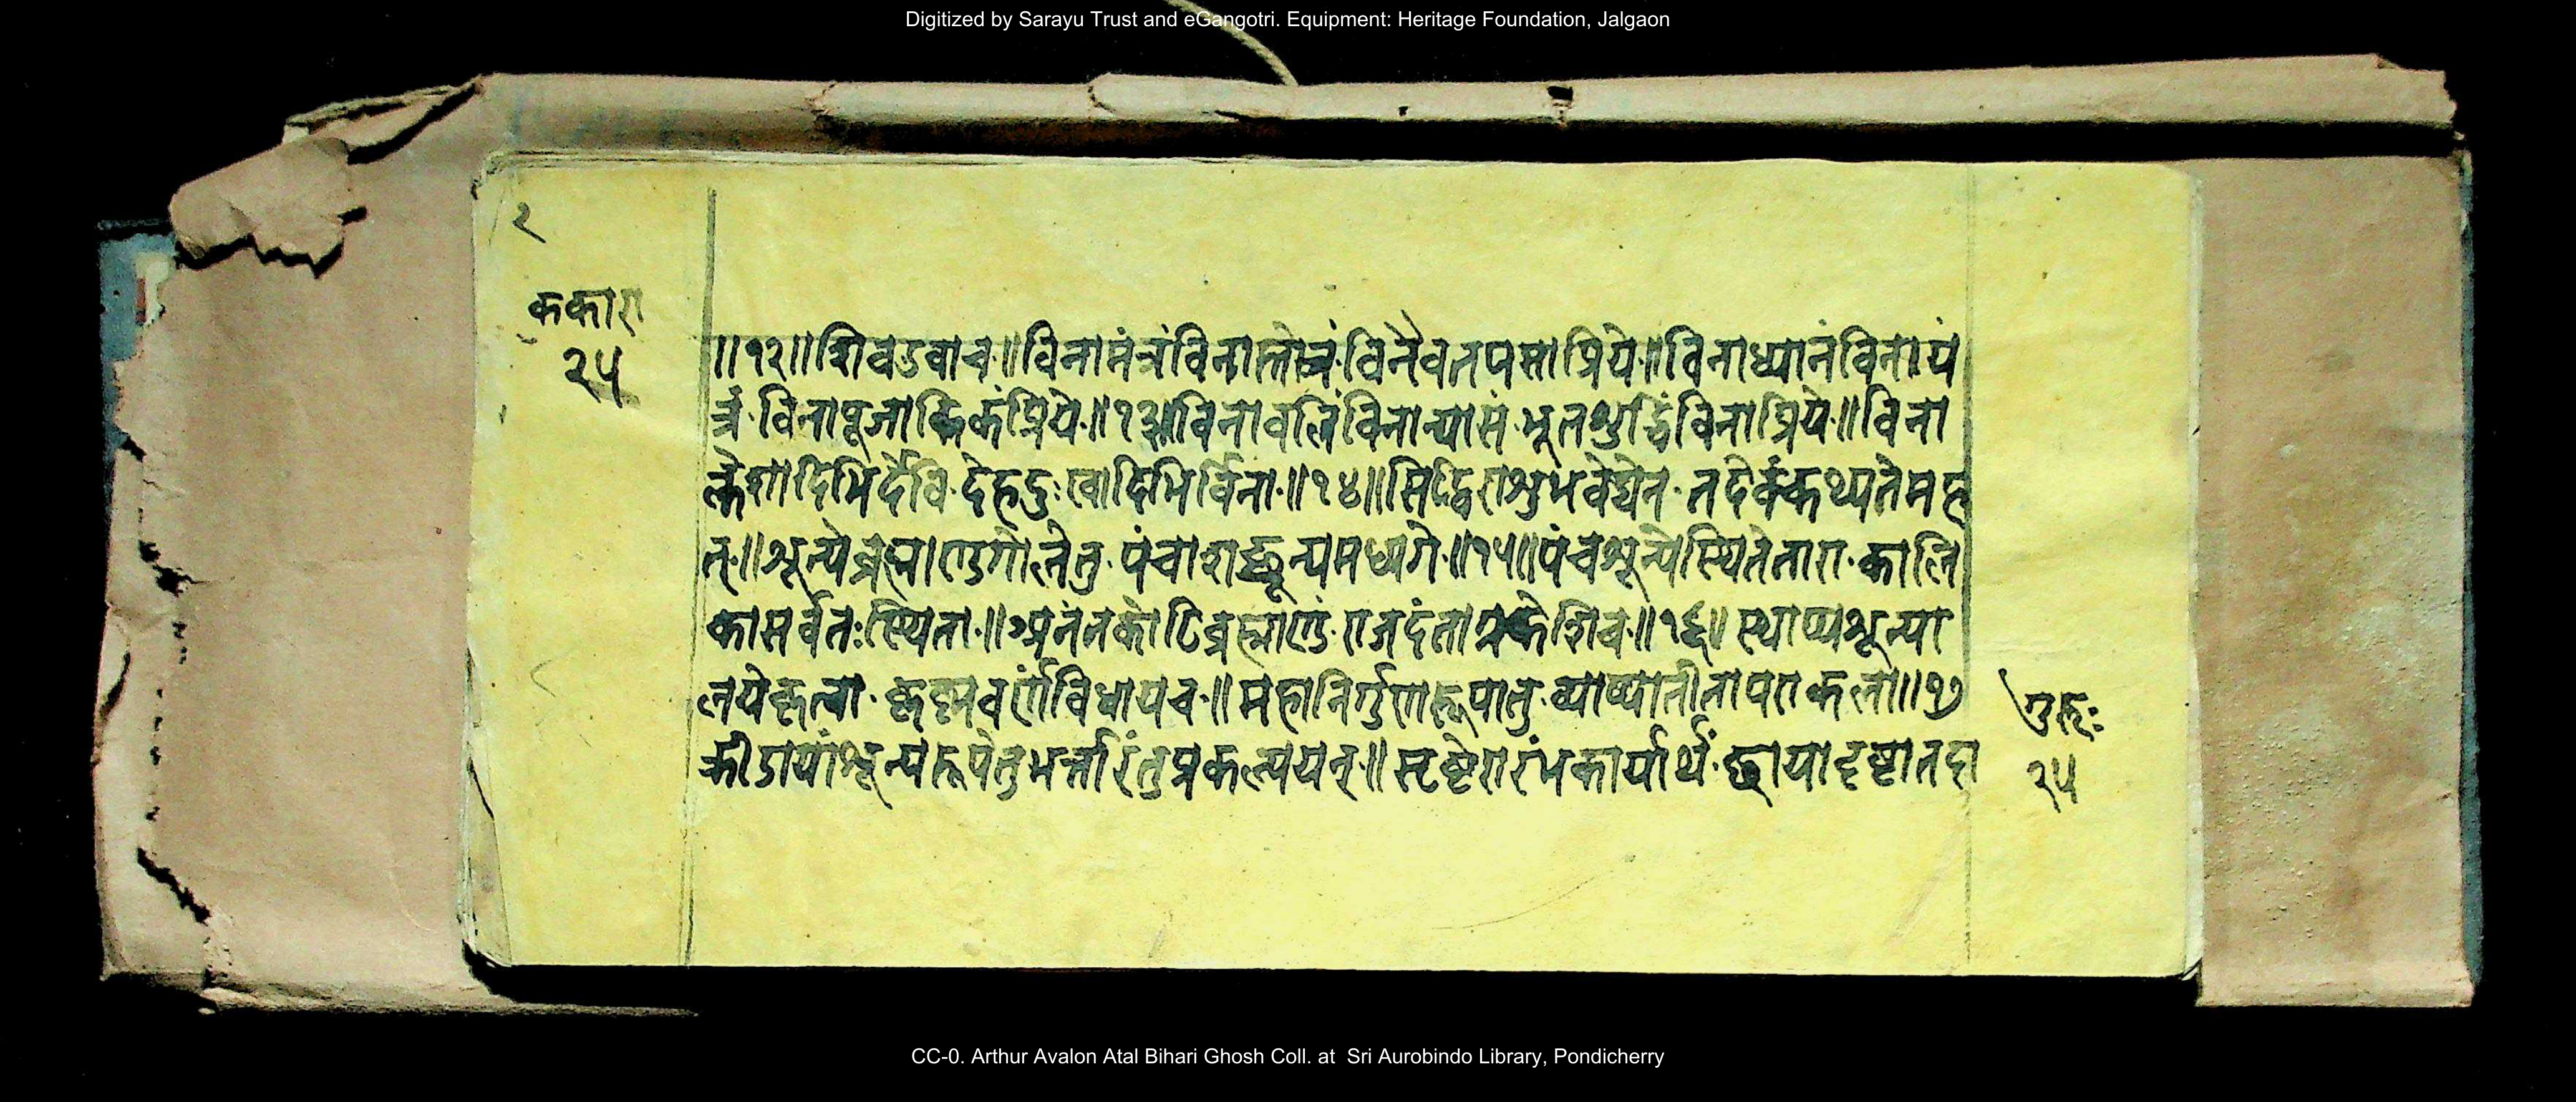 Digitized by Sarayu Trust and eGangotri. Equipment: Heritage Foundation, Jalgaon
२
ककारा
२५
॥१२॥शिवउवाच॥विनामंत्रंविनास्तोत्रंविनैवतपसाप्रिये॥विनाध्यानंविनायं
त्रंविनापूजादिकंप्रिये॥१३॥विनावलिंविनान्यासंभूतशुद्धिंविनाप्रिये॥विना
क्लेशादिभिर्देविदेहदुःखादिभिर्विना॥१४॥सिद्धिराशुभवेद्येनतदेवंकथ्यतेमह
त्॥शून्येब्रह्माण्डगोलेतुपंचाशच्छून्यमध्यगे॥१५॥पंचशून्येस्थितेताराकालि
कासर्वतःस्थिता॥अनंतकोटिब्रह्माण्डंराजदंताग्रकेशिवे॥१६॥स्थाप्यशून्या
लयेकृत्वाकृष्णवर्णंविधायच॥महानिर्गुणारूपातुव्याप्यातीतापराकला॥१७
क्रीडायांशून्यरूपेतुभर्त्तारंतुप्रकल्पयेत्॥सृष्टेरारंभकार्यार्थंछायादृष्टातदा
गुरुः
२५
CC-0. Arthur Avalon Atal Bihari Ghosh Coll. at Sri Aurobindo Library, Pondicherry